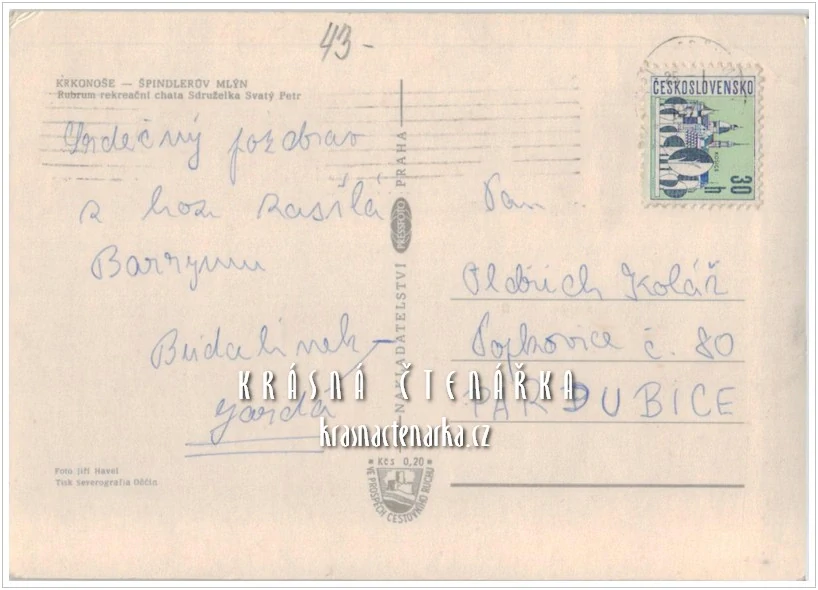 43-
KRKONOŠE — ŠPINDLERŮV MLÝN
Rubrum rekreační chata Sdruželka Svatý Petr
Srdečný pozdrav
z hor zasílá
Barrymu
Budulinek
Jarda
NAKLADATELSTVÍ PRESSFOTO PRAHA
ČESKOSLOVENSKO
30 h
Pan
Oldřich Kolář
Popkovice č. 80
PARDUBICE
KRÁSNÁ ČTENÁŘKA
krasnactenarka.cz
Foto Jiří Havel
Tisk Severografia Děčín
* Kčs 0,20 *
VE PROSPĚCH CESTOVNÍHO RUCHU